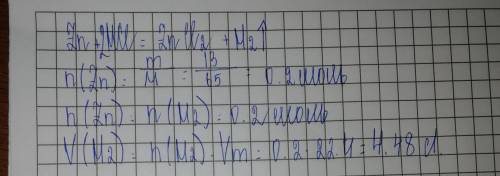 Zn + 2HCl = ZnCl2 + H2↑
n(Zn) = m/M = 13/65 = 0.2 моль
n(Zn) = n(H2) = 0.2 моль
V(H2) = n(H2) · Vm = 0.2 · 22.4 = 4.48 л.